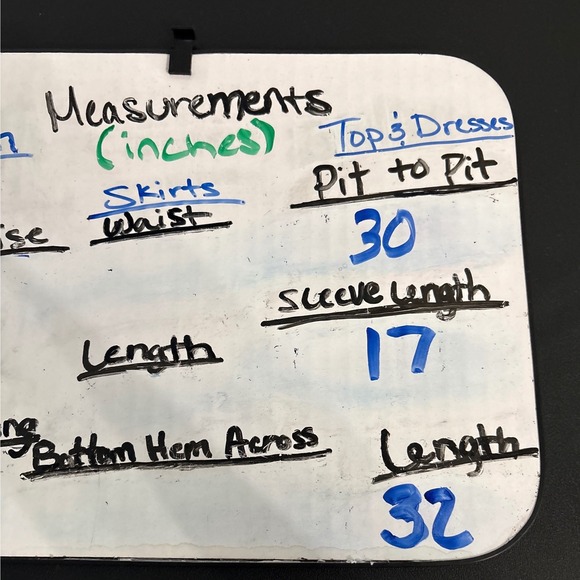 Measurements
(inches)
Top & Dresses
Skirts
Pit to Pit
Waist
30
Sleeve Length
17
Length
Bottom Hem Across
Length
32